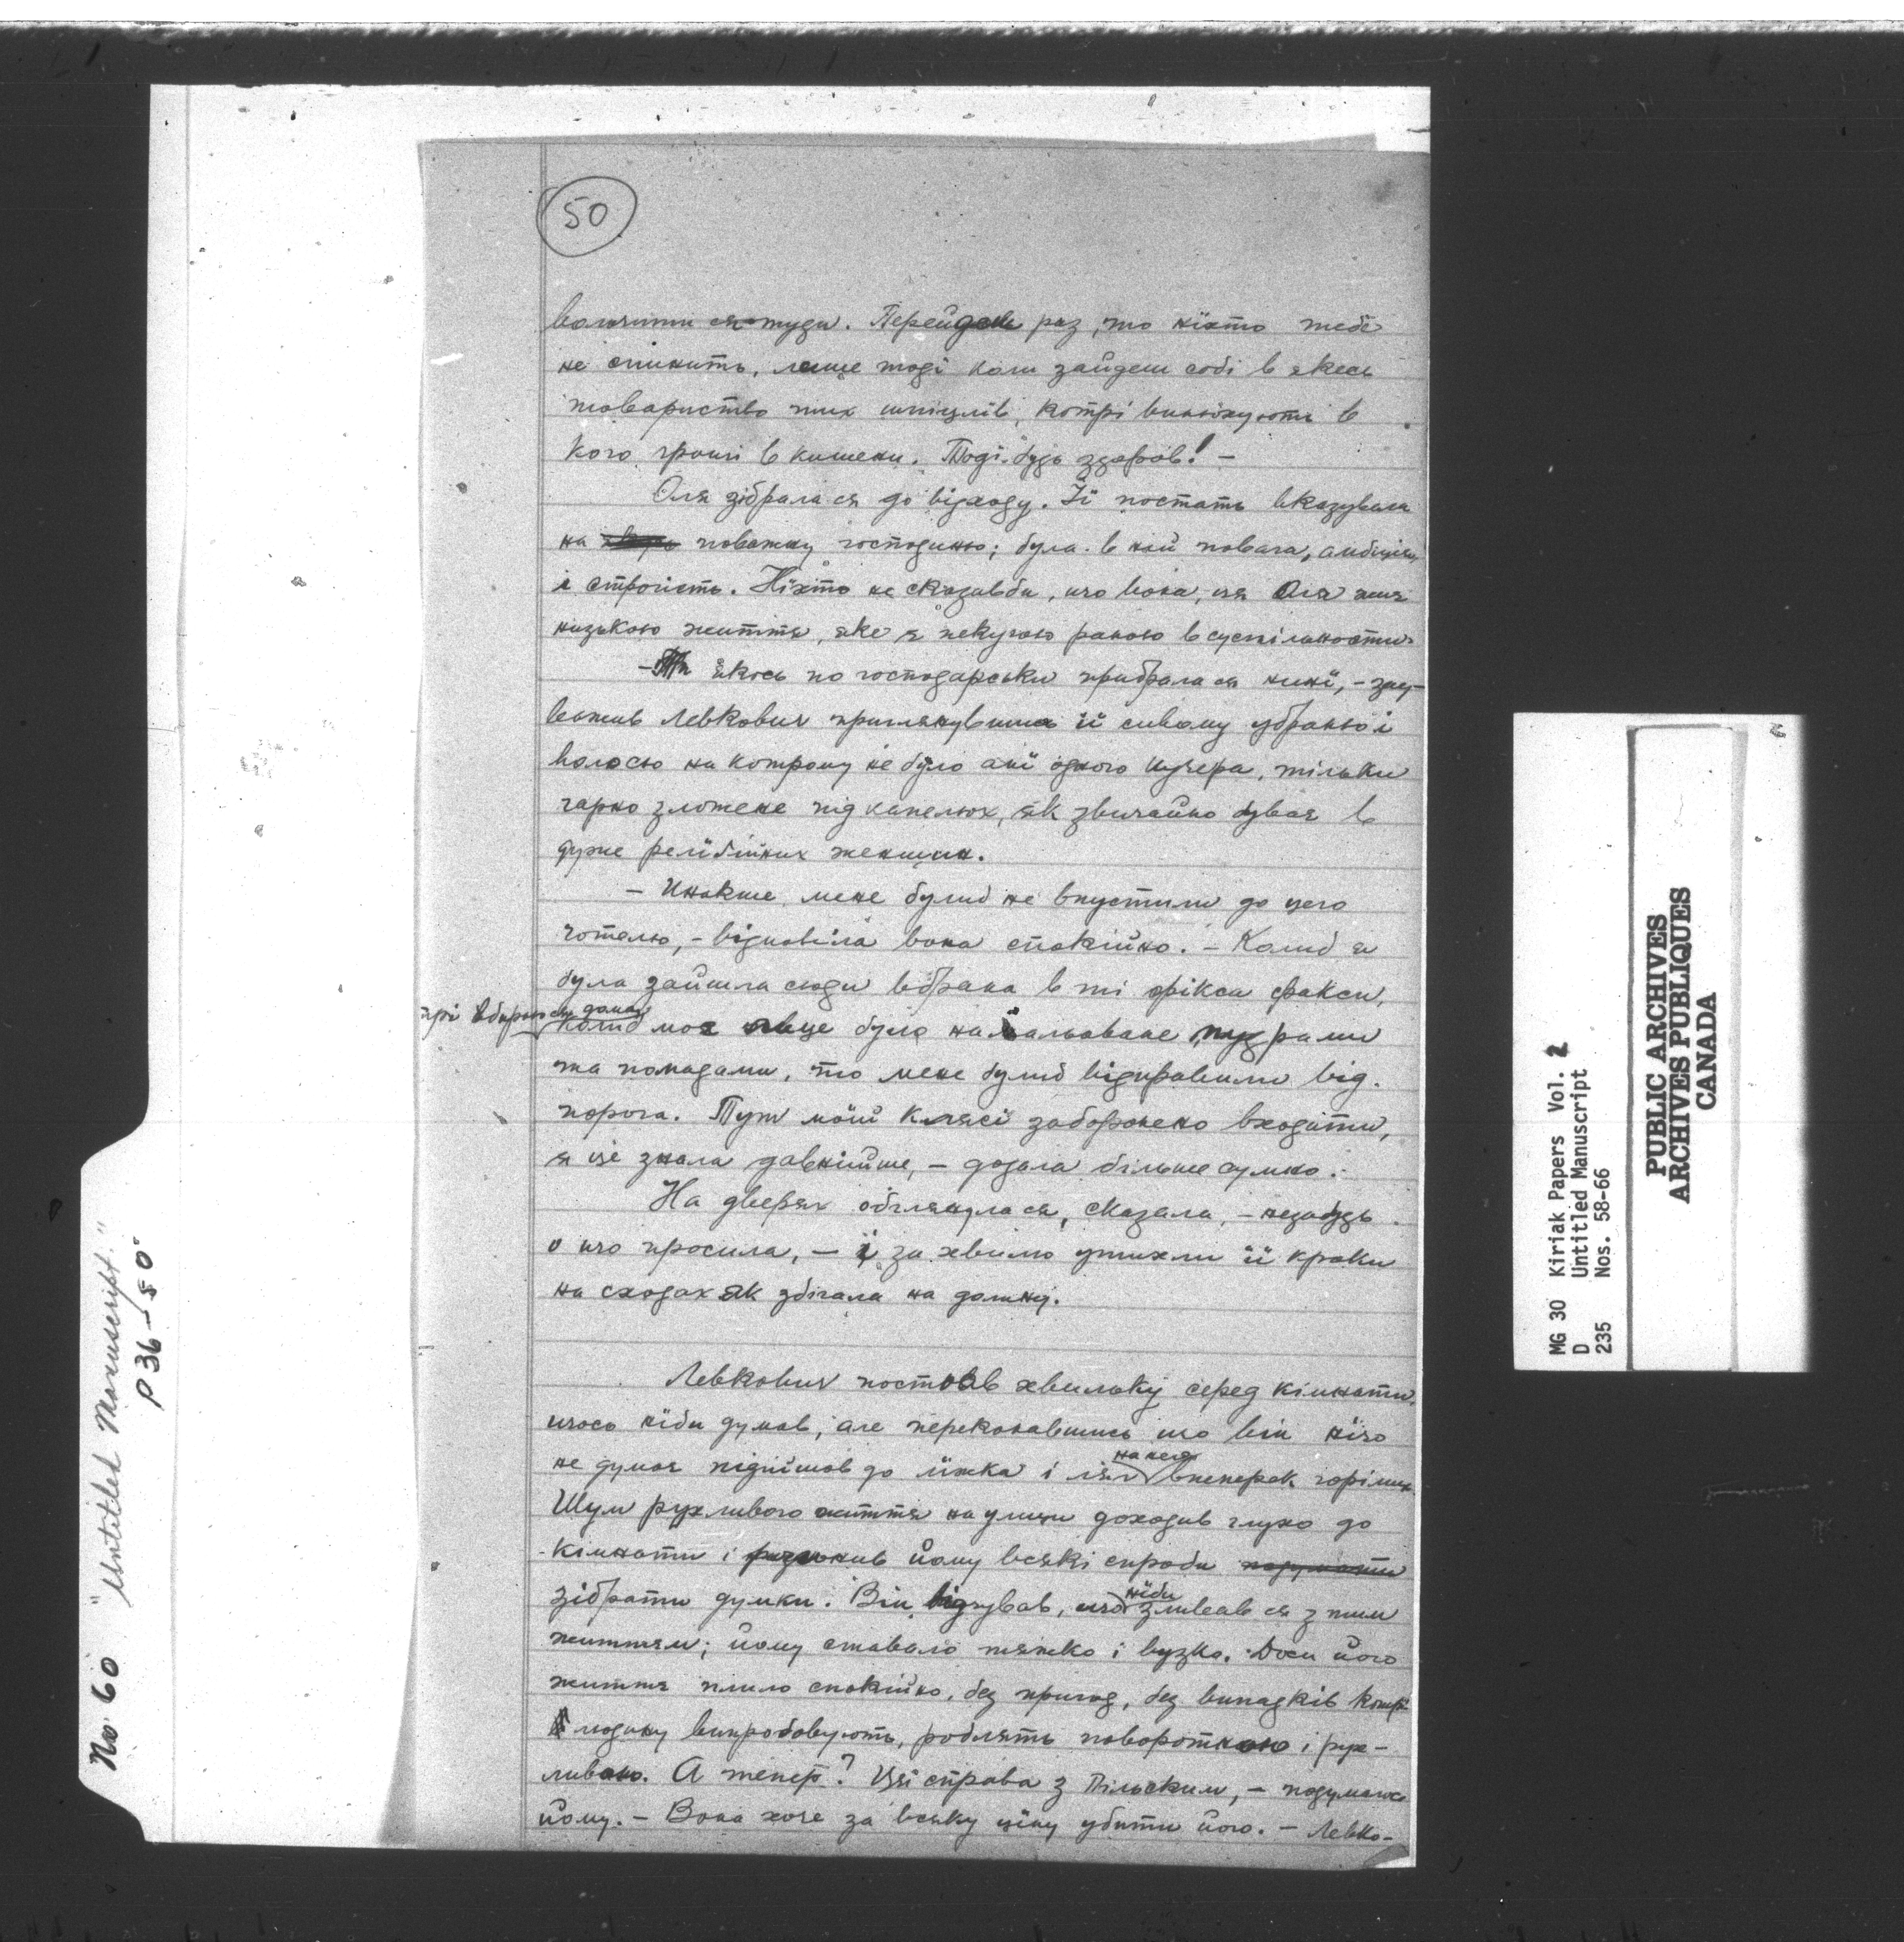 50
ся туди. Перейдеш раз, то ніхто тебе
не спинить, лише тоді коли зайдеш собі в якесь
товариство тих шпіцлів, котрі винюхують в
кого гроші в кишени. Тоді будь здоров! –
Оля зібрала ся до відходу. Її постать вказувала
на поважну господиню; була в ній повага, амбіція
і строгість. Ніхто не сказавби, що вона, ця Оля
низькою життя, яке є пекучою раною в суспільности.
– Ти якось по господарськи прибрала ся нині, – зау-
важив Левкович приглянувшися її сивому убранню і
волосю на котрому не було ані одного кучера, тільки
гарно зложене під капелюх, як звичайно буває в
дуже релігійних женщин.
– Инакше мене булиб не впустили до цего
готелю, – відповіла вона спокійно. – Колиб я
була зайшла сюди вбрана в ті фікси факси,
колиб моє лице було намальоване пудрами
та помадами, то мене булиб відправили від
порога. Тут моїй клясі заборонено входити,
я це знала давнійше, – додала більше сумно.
На дверях обглянула ся, сказала, – незабудь
о що просила, – і за хвилю утихли її кроки
на сходах як збігала на долину.
Левкович постояв хвильку серед кімнати,
щось ніби думав, але переконавшись що він нічо
не думає підійшов до ліжка і ліг на него впоперек горілиць.
Шум рухливого життя на улици доходив глухо до
кімнати і йому всякі спроби подумати
зібрати думки. Він відчував, що ніби зливав ся з тим
життям; йому ставало тяжко і вузко. Доси його
життя плило спокійно, без пригод, без випадків котрі
людину випробовують, роблять поворотною і рух-
ливою. А тепер? Ця справа з Пільским, – подумалось
йому. – Вона хоче за всяку ціну убити його. – Левко-
No 60 "Untitled Manuscript."
P 36–50
MG 30 Kiriak Papers Vol. 2
D Untitled Manuscript
235 Nos. 58-66
PUBLIC ARCHIVES
ARCHIVES PUBLIQUES
CANADA